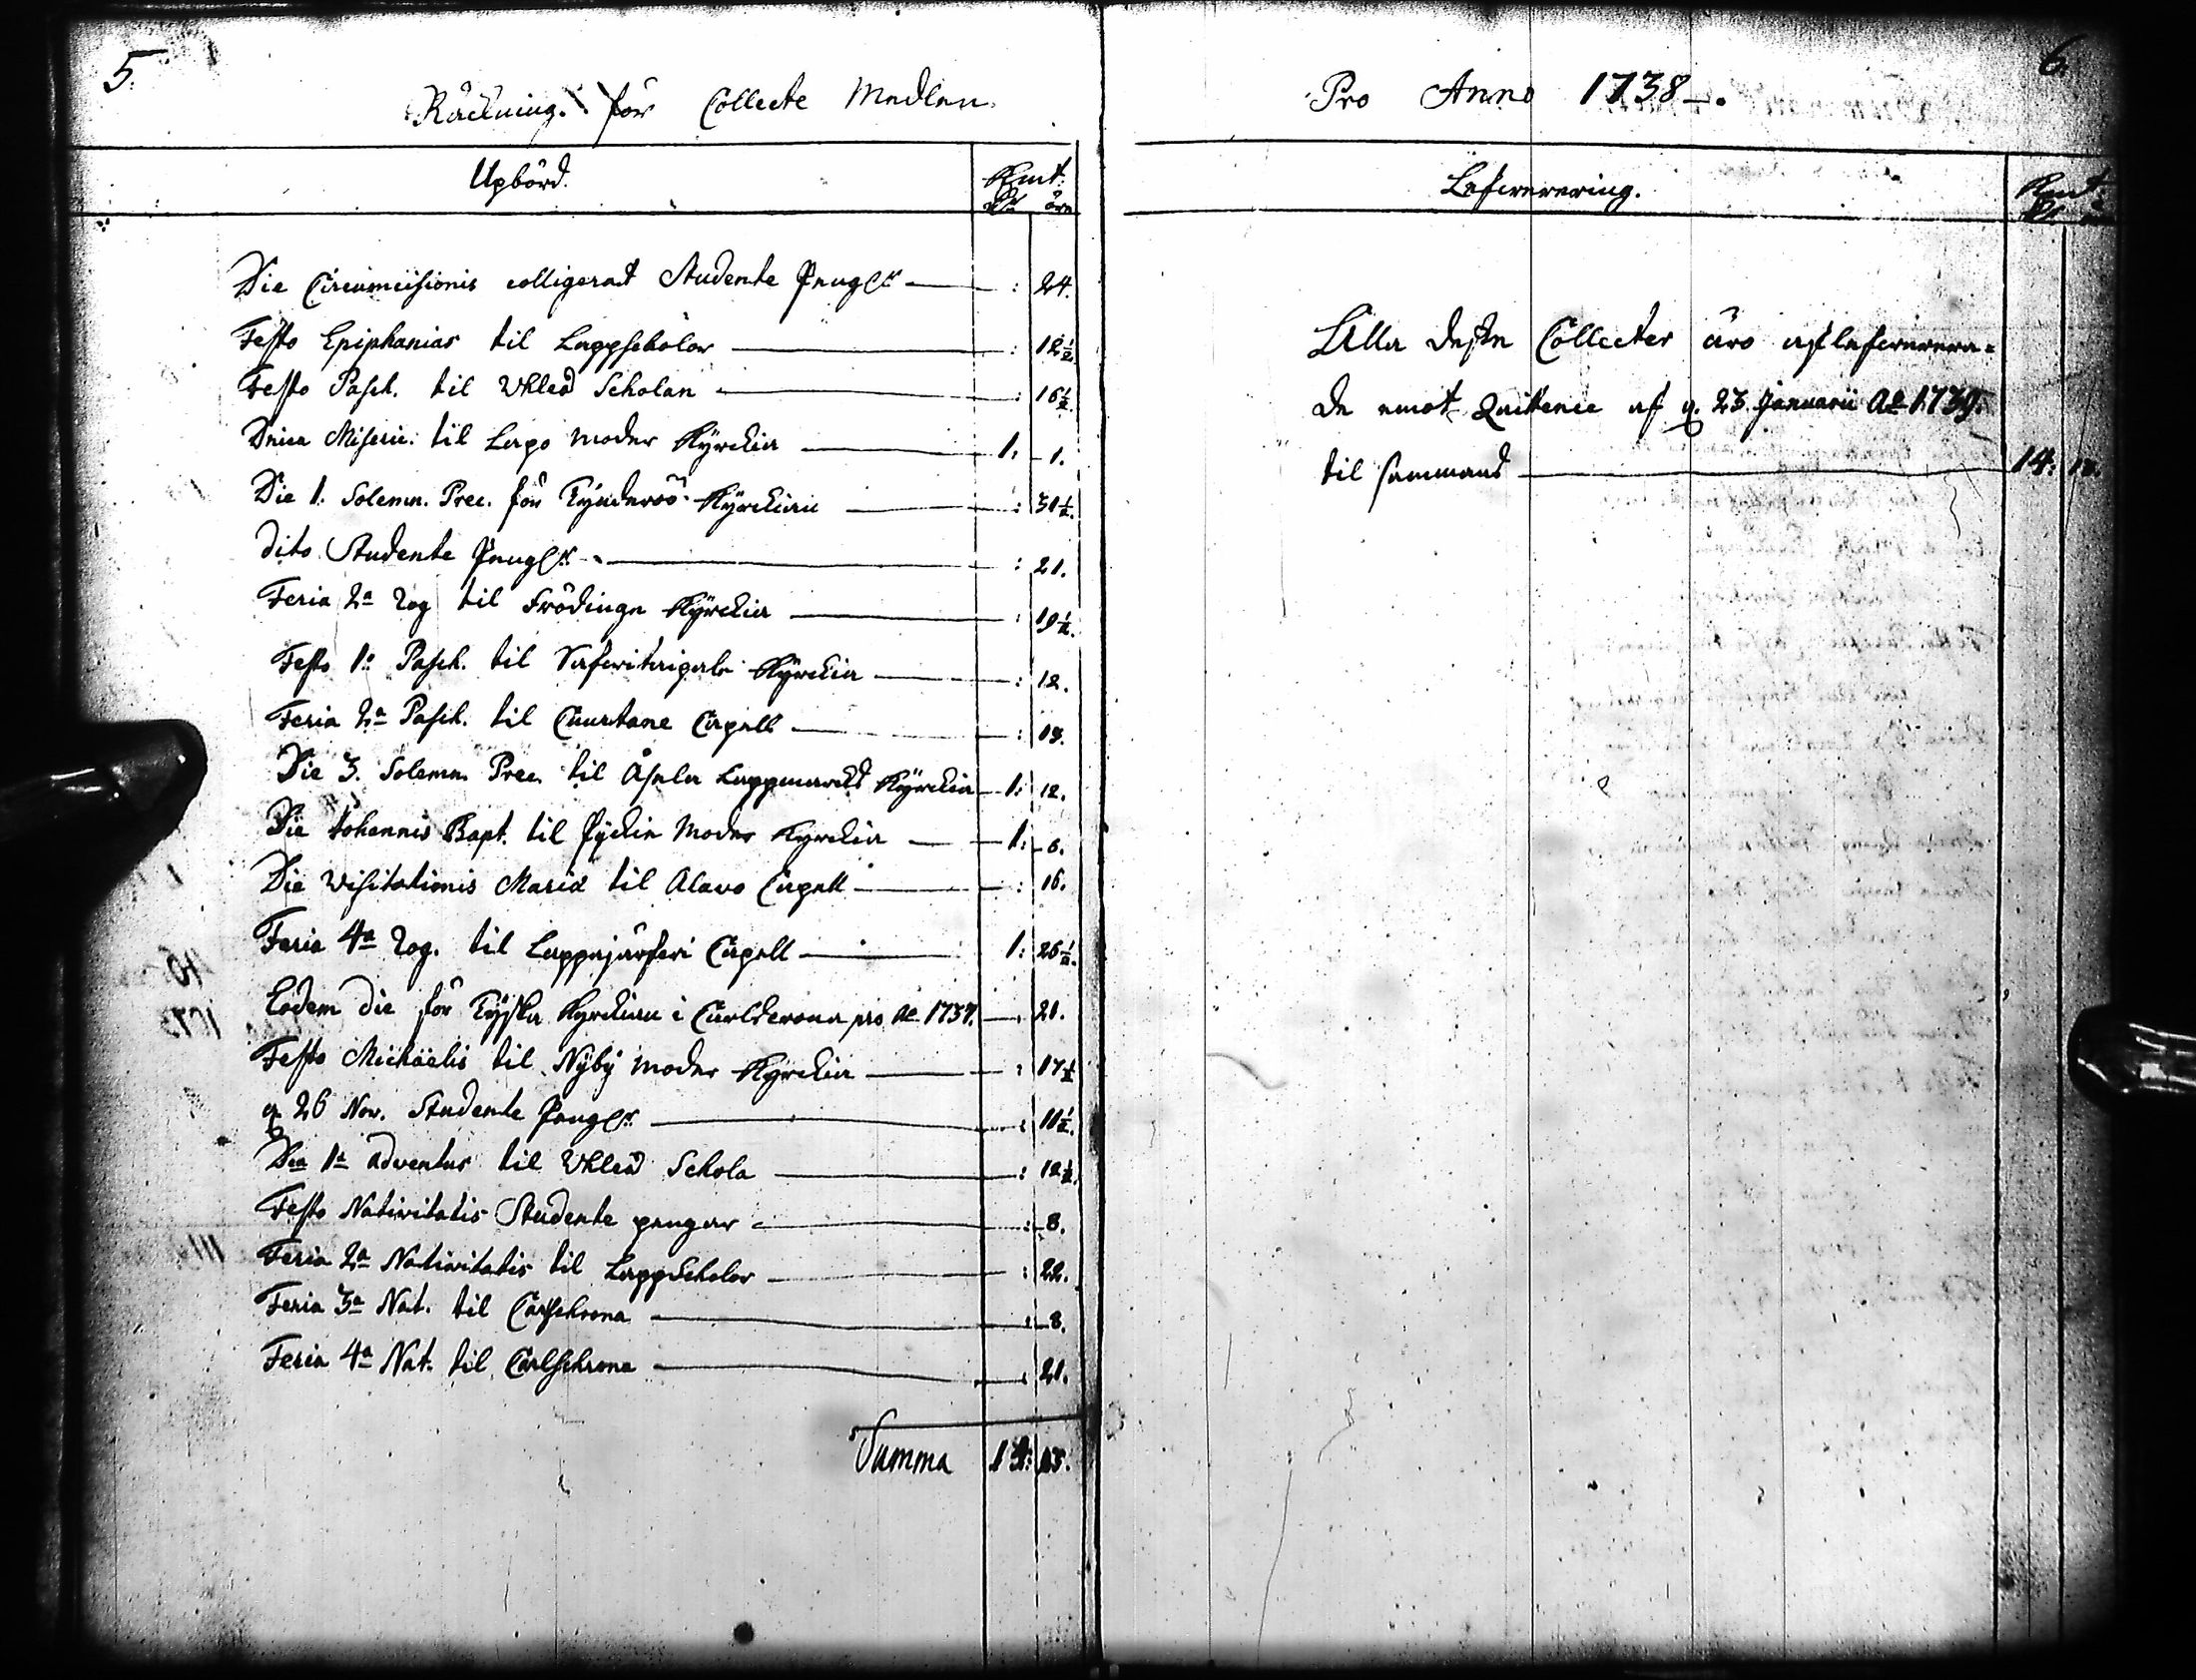 5.
Räckning för Collecte Medlen.
Upbörd. Kmt.
dlr öre
Die Circumcisionis colligerat Studente Peng:r — : 24.
Festo Epiphanias til Lappscholor — : 12½.
Festo Pasch. til Uhleå Scholan — : 16½.
Dnica Miseric: til Lapo moder Kÿrckia — 1. 1.
Die 1. Solemn. Prec. för Tÿnderöö Kÿrckian — : 31½.
Dito Studente Peng:r — : 21.
Feria 2a Rog til Frödinge Kÿrckia — : 19½.
Festo 1o Pasch. til Kÿrckia — : 12.
Feria 2a Pasch. til Cuurtane Capell — : 13.
Die 3. Solemn. Prec. til Åsele Lappmarcks Kÿrckia — 1: 12.
Die Johannis Bapt. til Pÿckie Moder Kyrckia — 1: 6.
Die Visitationis Mariæ til Alavo Capell — : 16.
Feria 4a Rog. til Lappajärfvi Capell — 1: 26½.
Eodem die för Tÿska Kyrckian i Carlscrona pro Ao 1737. — : 21.
Festo Michaëlis til Nÿbÿ moder Kÿrckia — : 17½
d. 26 Nov. Studente Peng:r — : 11½.
Dca 1a adventus til Uhleå Schola — : 12½.
Festo Nativitatis Studente pengar — : 8.
Feria 2a Nativitatis til Lappscholor — : 22.
Feria 3a Nat. til Carlschrona — : 8.
Feria 4a Nat. til Carlschrona — : 21.
Summa 14: 13.
6.
Pro Anno 1738.
Lefwerering. Kmt
Alla desse Collecter äro aflefwerera-
de emot Quittence af d. 23 Januarii Ao 1739.
til sammans — 14.